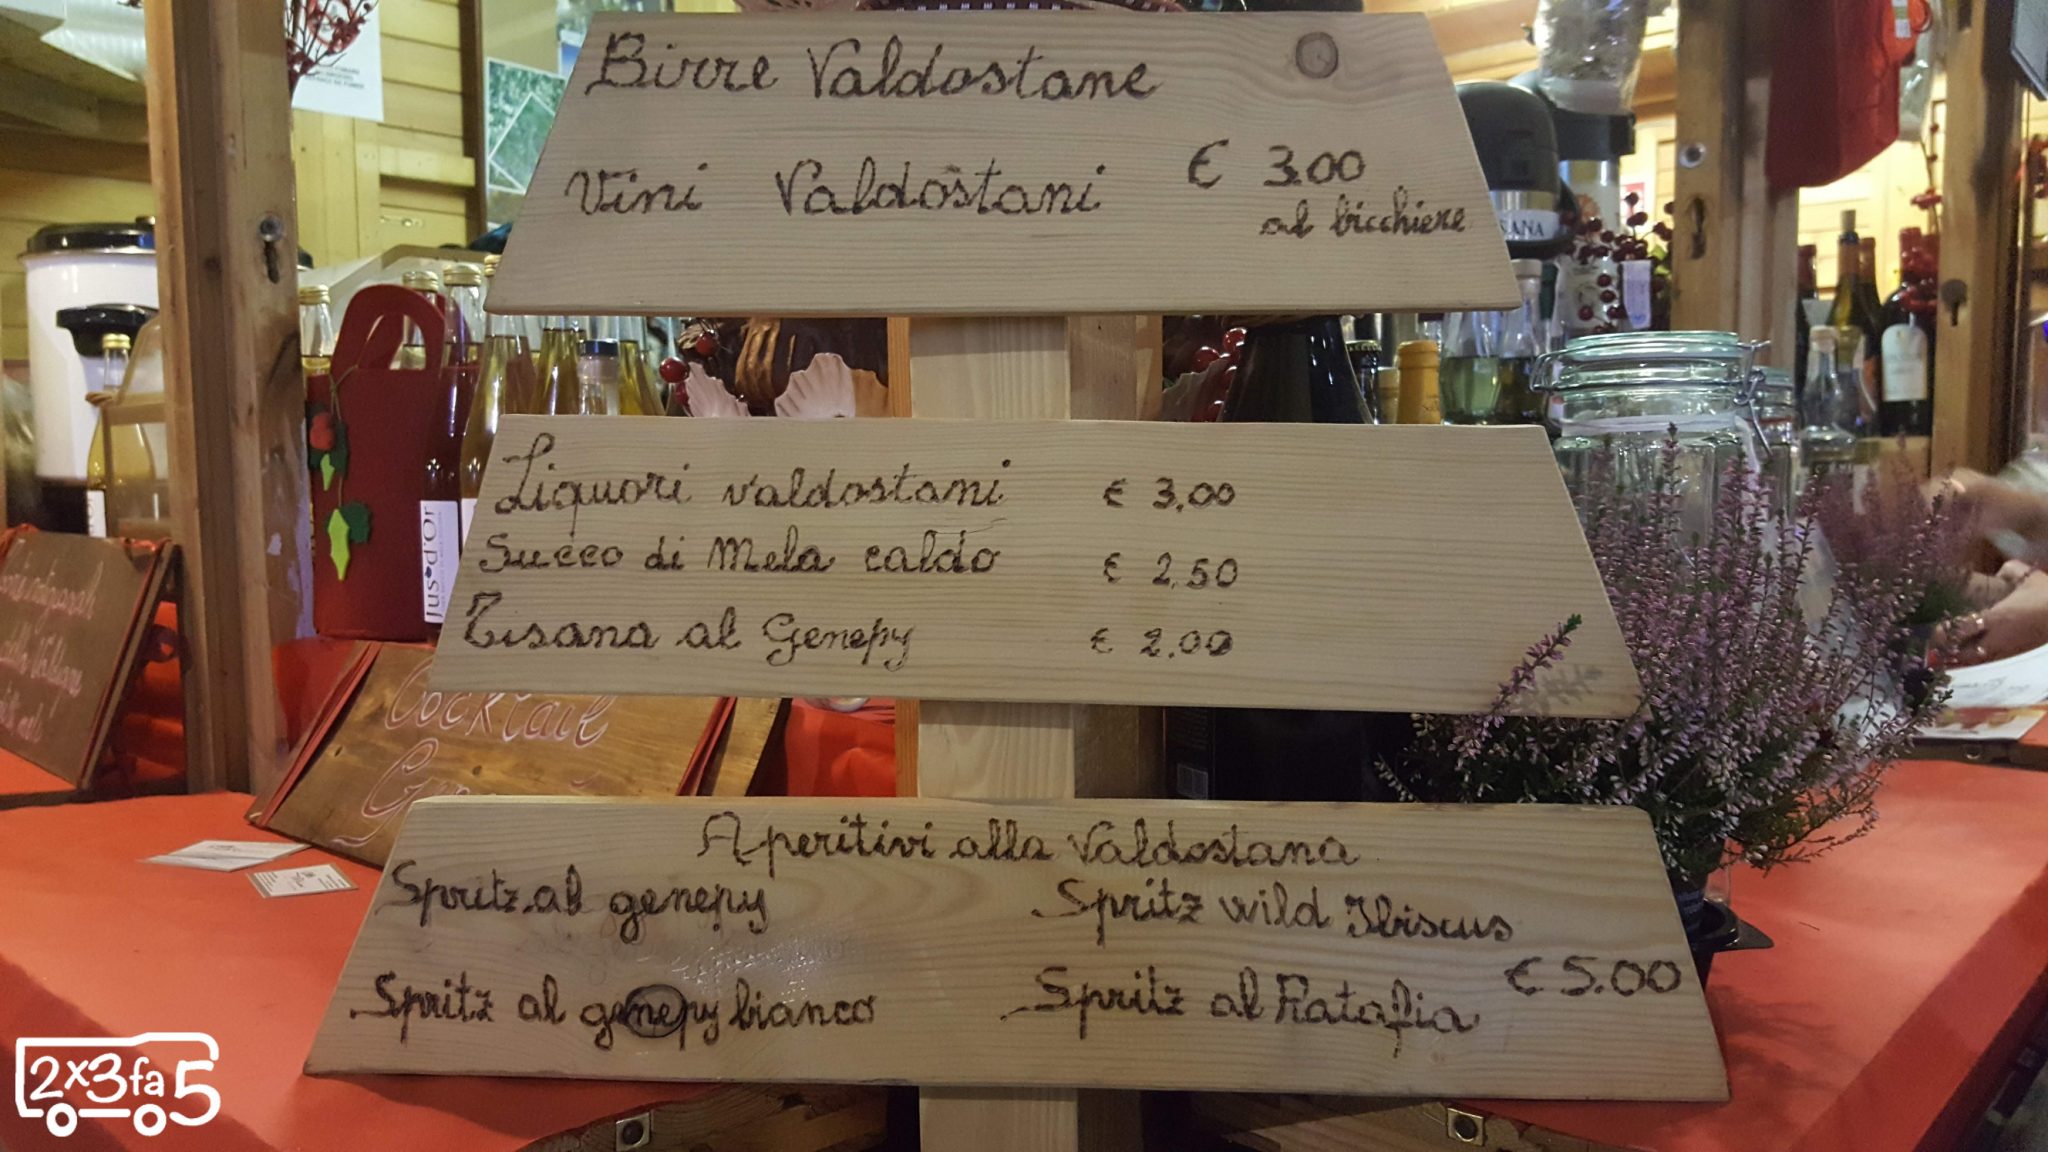 Birre Valdostane
Vini Valdostani € 3.00
al bicchiere
Liquori valdostani € 3.00
Succo di Mela caldo € 2.50
Tisana al Genepy € 2.00
Aperitivi alla Valdostana
Spritz al genepy Spritz wild Ibiscus
Spritz al genepy bianco Spritz al Ratafia € 5.00
Cocktail
Jus d'Or
2x3fa5